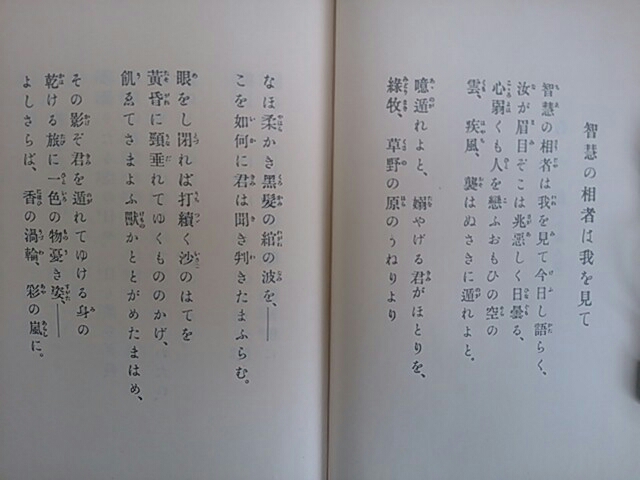 智慧の相者は我を見て
智慧の相者は我を見て今日し語らく、
汝が眉目ぞこは兆悪しく日曇る、
心弱くも人を戀ふおもひの空の
雲、疾風、襲はぬさきに遁れよと。
噫遁れよと、嫋やげる君がほとりを、
緑牧、草野の原のうねりより
なほ柔かき黒髪の綰の波を、――
こを如何に君は聞き判きたまふらむ。
眼をし閉れば打續く沙のはてを
黄昏に頸垂れてゆくもののかげ、
飢ゑてさまよふ獸かととがめたまはめ、
その影ぞ君を遁れてゆける身の
乾ける旅に一色の物憂き姿、――
よしさらば、香の渦輪、彩の嵐に。